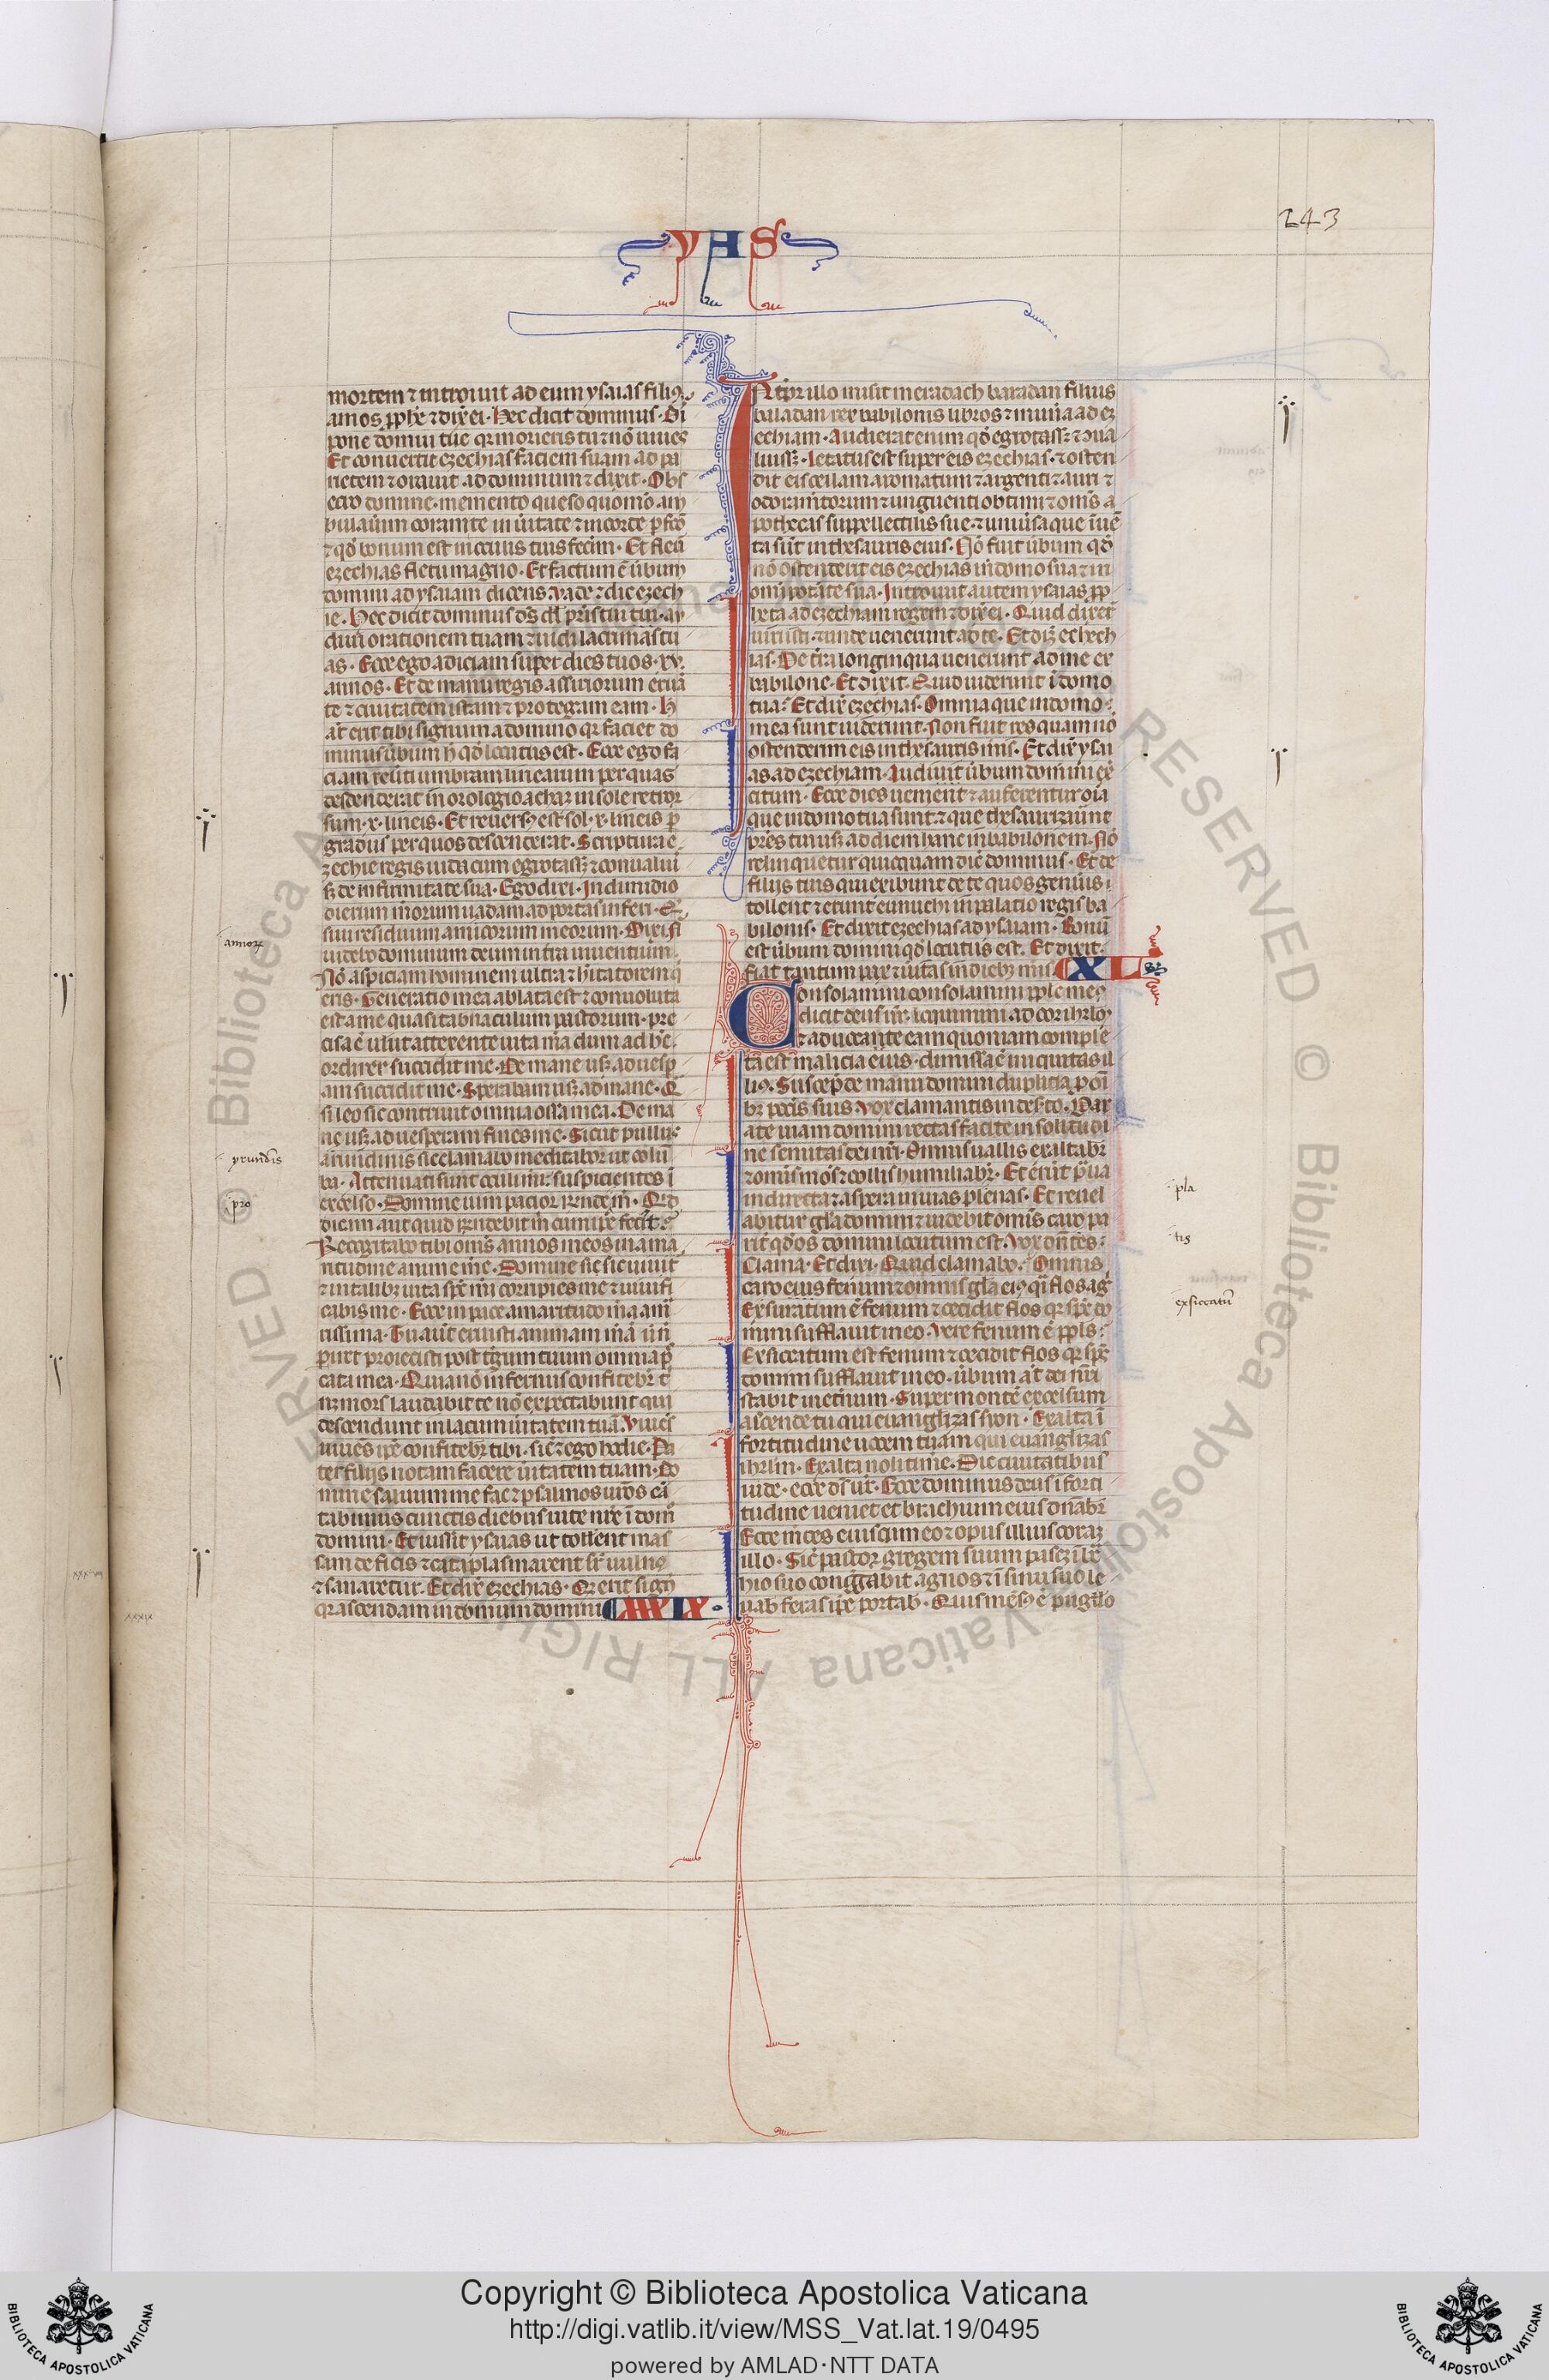 243
YAS
mortem ⁊ introiuit ad eum ysaias filiꝯ
amos ꝓph̅e ⁊ dix̅ ei. Hec dicit dominus. Di
pone domui tue qr morieris tu ⁊ nō uiues
Et conuertit ezechias faciem suam ad pa
rietem ⁊ orauit ad dominum ⁊ dixit. Obs
ecro domine. memento queso quomō am
bulauim coram te in ūitate ⁊ in corde pfc̅o
⁊ qđ bonum est in oculis tuis fecim. Et fleū
ezechias fletu magno. Et factum ē ūbum
domini ad ysaiam dicens. Vade ⁊ dic ezech
ie. Hec dicit dominus ds̄ dd̄ pr̄is tui. au
diui orationem tuam ⁊ uidi lacrimas tu
as. Ecce ego adiciam super dies tuos .xv.
annos. Et de manu regis assiriorum eruā
te ⁊ ciuitatem istam ⁊ protegam eam. H
aū erit tibi signum a domino qr faciet do
minus ūbum h̄ qđ locutus est. Ecce ego fa
ciam reuti umbram linearum per quas
descenderat in orologio achaz in sole retror
sum .x. lineis. Et reuersꝯ est sol .x. lineis p
gradus per quos descenderat. Scriptura e
zechie regis iuda cum egrotassꝫ ⁊ conualui
sꝫ de infirmitate sua. Ego dixi. In dimidio
dierum meorum uadam ad portas inferi. Q
siui residuum annorum meorum. Dixi n̄
uidebo dominum deum in tra uiuentium.
Nō aspiciam hominem ultra ⁊ hītatorem q̄
etis. Generatio mea ablata est ⁊ conuoluta
est a me quasi tabnaculum pastorum. pre
cisa ē uelut a texente uita mā dum adhc
ordirer succidit me. De mane usꝫ ad uesp
am finies me. Sperabam usꝫ ad mane. Q
si leo sic contriuit omnia ossa mea. De ma
ne usꝫ ad uesperam finies me. Sicut pullus
arundinis sic clamabo meditabor ut colū
ba. Attenuati sunt oculi mei suspicientes ī
excelso. Domine uim patior rn̄de m̄. Qd
dicam aut quid rn̄debit m̄ cum ip̄e fecit.
Recogitabo tibi omīs annos meos in ama
ritudine anime me. Domine si sic uiuit̄
⁊ in talibꝫ uita sp̄c mī corripies me ⁊ uiuifi
cabis me. Ecce in pace amaritudo mā ama
rissima. Tu aūt eruisti animam mā ut n̄
piret proiecisti post tgum tuum omnia p̄
cata mea. Quia nō infernus confitebr̄ t̄
nꝫ mors laudabit te nō expectabunt qui
descendunt in lacum ūitatem tuā. Viues
uiues ip̄e confitebr̄ tibi. sic̄ ⁊ ego hodie. Pa
ter filijs notam faciet ūitatem tuam. Do
mine saluum me fac ⁊ psalmos nr̄os cā
tabimus cunctis diebus uite nr̄e ī dom̄
domini. Et iussit ysaias ut tollent mas
sam de ficis ⁊ cataplasmarent sr̄ uulnꝯ
⁊ sanaretur. Et dix̅ ezechias. Q̄ erit signū
qr ascendam in domum domini XXXIX
IN tp̄r illo misit merodach baradan filius
baladan rex babilonis libros ⁊ munia ad ez
echiam. Audierat enim qđ egrotassꝫ ⁊ ↄua
luissꝫ. Letatus est super eis ezechias. ⁊ osten
dit eis cellam aromatum ⁊ argenti ⁊ auri ⁊
odoramtorum ⁊ unguenti obtimi ⁊ omīs a
pothecas suppellectilis sue. ⁊ uniūsa que īuē
ta sūt in thesauris eius. Nō fuit ūbum qđ
nō ostenderet eis ezechias in domo sua ⁊ in
omi potate sua. Introiuit autem ysaias ꝓp
heta ad ezechiam regem ⁊ dix̅ ei. Quid dixer̄
uiri isti. ⁊ unde uenerunt ad te. Et dix̅ ezech
ias. De tra longinqua uenerunt ad me ex
babilone. Et dixit. Quid uiderunt ī domo
tua. Et dix̅ ezechias. Omnia que in domo
mea sunt uiderunt. Non fuit res quam nō
ostenderim eis in thesauris mīs. Et dix̅ ysai
as ad ezechiam. Audi ūbum domini ex̄
citum. Ecce dies uenient ⁊ auferentur oīa
que in domo tua sunt ⁊ que thesaurizaūnt
pr̄es tui usꝫ ad diem hanc in babilonem. Nō
relinquetur quicquam dic̄ dominus. Et de
filijs tuis qui exibunt de te quos genūis
tollent ⁊ erunt eunuchi in palatio regis ba
bilonis. Et dixit ezechias ad ysaiam. Bonū
est ūbum domini qđ locutus est. Et dixit.
fiat tantum pax ⁊ ūitas in diebꝫ mīs. XL
Consolamini consolamini pple meꝯ
dicit deus ūr̄. loquimini ad cor ihrlm
⁊ aduocate eam quoniam comple
ta est malicia eius. dimissa ē iniquitas il
liꝯ. Suscep̄ de manu domini duplicia p oī
bꝫ pccīs suis. Vox clamantis in desto. Par
ate uiam domini rectas facite in solitudi
ne semitas dei nr̄i. Omnis uallis exaltabr̄
⁊ omīs mōs ⁊ collis humiliabr̄. Et erūt p̄ua
in directa ⁊ aspera in uias plenas. Et reuel
abitur gla domini ⁊ uidebit omīs caro pa
rit̄ qđ os domini locutum est. Vox dn̄tes.
Clama. Et dixi. Quid clamabo. Omnis
caro eius fenum ⁊ omnis gla eiꝯ q̄i flos agi
Exsuratum ē fenum ⁊ cecidit flos qr sp̄c do
mini sufflauit in eo. Vere fenum ē ppls.
Exsiccatum est fenum ⁊ cecidit flos qr sp̄c
domini sufflauit in eo. ūbum aū dei nr̄i
stabit in etnum. Super montē excelsum
ascende tu qui euanglizas syon. Exalta ī
fortitudine uocem tuam qui euanglizas
ihrlm. Exalta noli time. Dic ciuitatibus
iude. ecce ds̄ ūr. Ecce dominus deus ī forti
tudine ueniet et brachium eius dn̄abr̄
Ecce merces eius cum eo ⁊ opus illius coraꝫ
illo. Sic̄ pastor gregem suum pascꝫ ī br̄
hio suo conggabit agnos ⁊ ī sinu suo le
uab̄ fetas ip̄e portab̄. Quis mēsꝯ ē pugillo
annoꝝ
yrundīs
pro
xxxix
pla
tis
exsiccatū
Copyright © Biblioteca Apostolica Vaticana
http://digi.vatlib.it/view/MSS_Vat.lat.19/0495
powered by AMLAD·NTT DATA
BIBLIOTECA APOSTOLICA VATICANA
BIBLIOTECA APOSTOLICA VATICANA